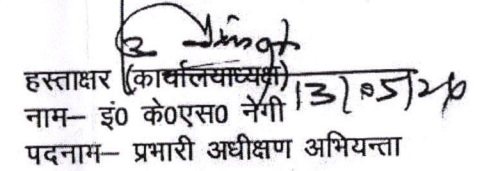 हस्ताक्षर (कार्यालयाध्यक्ष)
नाम– इं0 के0एस0 नेगी
पदनाम– प्रभारी अधीक्षण अभियन्ता